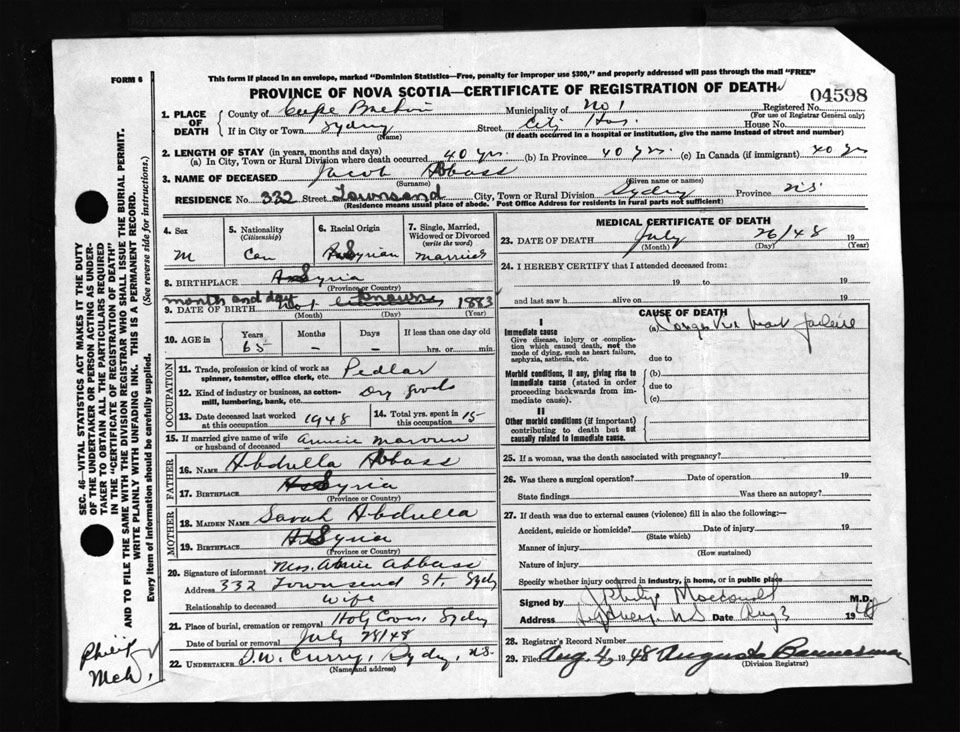 FORM 6
This form if placed in an envelope, marked "Dominion Statistics—Free, penalty for improper use $300," and properly addressed will pass through the mail "FREE"
PROVINCE OF NOVA SCOTIA—CERTIFICATE OF REGISTRATION OF DEATH
04598
1. PLACE OF DEATH
County of Cape Breton Municipality of No 1 Registered No.
(For use of Registrar General only)
If in City or Town Sydney Street City Hos. House No.
(Name) (If death occurred in a hospital or institution, give the name instead of street and number)
2. LENGTH OF STAY (in years, months and days)
(a) In City, Town or Rural Division where death occurred 40 yrs. (b) In Province 40 yrs. (c) In Canada (if immigrant) 40 yrs
3. NAME OF DECEASED Jacob Abbass
(Surname) (Given name or names)
RESIDENCE No. 332 Street Townsend City, Town or Rural Division Sydney Province N.S.
(Residence means usual place of abode. Post Office Address for residents in rural parts not sufficient)
4. Sex
M
5. Nationality
(Citizenship)
Can
6. Racial Origin
Syrian
7. Single, Married, Widowed or Divorced
(write the word)
Married
8. BIRTHPLACE Syria
(Province or Country)
month and day
9. DATE OF BIRTH Not known 1883
(Month) (Day) (Year)
10. AGE in
Years Months Days If less than one day old
65 – hrs. or min.
OCCUPATION
11. Trade, profession or kind of work as spinner, teamster, office clerk, etc. Pedlar
12. Kind of industry or business, as cotton-mill, lumbering, bank, etc. Dry goods
13. Date deceased last worked at this occupation 1948
14. Total yrs. spent in this occupation 15
15. If married give name of wife or husband of deceased Annie
FATHER
16. NAME Abdulla Abbass
17. BIRTHPLACE Syria
(Province or Country)
MOTHER
18. MAIDEN NAME Sarah Abdulla
19. BIRTHPLACE Syria
(Province or Country)
20. Signature of informant Mrs. Annie Abbass
Address 332 Townsend St. Sydy
Relationship to deceased Wife
21. Place of burial, cremation or removal Holy Cross, Sydney
Date of burial or removal July 28/48
22. UNDERTAKER D.W. Curry, Sydy, N.S.
(Name and address)
MEDICAL CERTIFICATE OF DEATH
23. DATE OF DEATH July 26/48 19
(Month) (Day) (Year)
24. I HEREBY CERTIFY that I attended deceased from:
19 to 19
and last saw h alive on 19
CAUSE OF DEATH
I
Immediate cause
Give disease, injury or complication which caused death, not the mode of dying, such as heart failure, asphyxia, asthenia, etc.
(a) Congestive heart failure
due to
Morbid conditions, if any, giving rise to immediate cause (stated in order proceeding backwards from immediate cause).
(b)
due to
(c)
II
Other morbid conditions (if important) contributing to death but not causally related to immediate cause.
25. If a woman, was the death associated with pregnancy?
26. Was there a surgical operation? Date of operation 19
State findings Was there an autopsy?
27. If death was due to external causes (violence) fill in also the following:—
Accident, suicide or homicide? Date of injury 19
(State which)
Manner of injury
(How sustained)
Nature of injury
Specify whether injury occurred in industry, in home, or in public place
Signed by J Philip Macdonald M.D.
Address Sydney N.S Date Aug 3 1948
28. Registrar's Record Number
29. Filed Aug. 4, 1948 Augusta Bannerman
(Division Registrar)
SEC. 46—VITAL STATISTICS ACT MAKES IT THE DUTY OF THE UNDERTAKER OR PERSON ACTING AS UNDERTAKER TO OBTAIN ALL THE PARTICULARS REQUIRED IN THE "CERTIFICATE OF REGISTRATION OF DEATH" AND TO FILE THE SAME WITH THE DIVISION REGISTRAR WHO SHALL ISSUE THE BURIAL PERMIT.
WRITE PLAINLY WITH UNFADING INK. THIS IS A PERMANENT RECORD.
Every item of information should be carefully supplied. (See reverse side for instructions.)